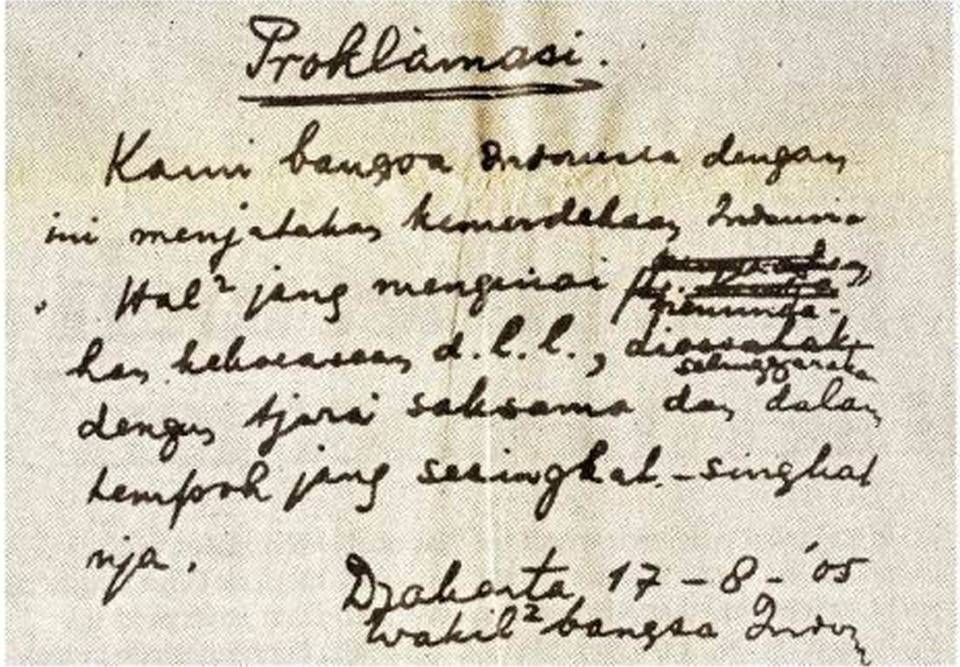 Proklamasi.
Kami bangsa Indonesia dengan
ini menjatakan kemerdekaan Indonesia
. Hal² jang mengenai peminda-
han kekoeasaan d.l.l., diselenggarakan
dengan tjara saksama dan dalam
tempoh jang sesingkat-singkat
nja.
Djakarta, 17 - 8 - '05
Wakil² bangsa Indon